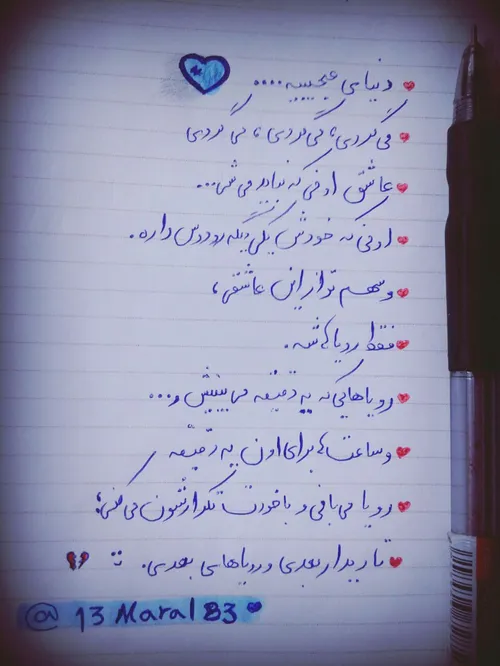 دنیای عجیبیه....
می گردی، می گردی، می گردی
عاشق اونی که نباید می شی...
اونی که خودش یکی دیگه رو دوس داره.
وسهم تو از این عاشقی،
فقط رویاهاشه.
رویاهایی که یه دقیقه می بینیش و...
وساعت ها برای اون یه دقیقه
رویا می بافی و باخودت تکرارشون می کنی؛
تا دیدار بعدی و رویاهای بعدی. :)
@ 13 Maral 83